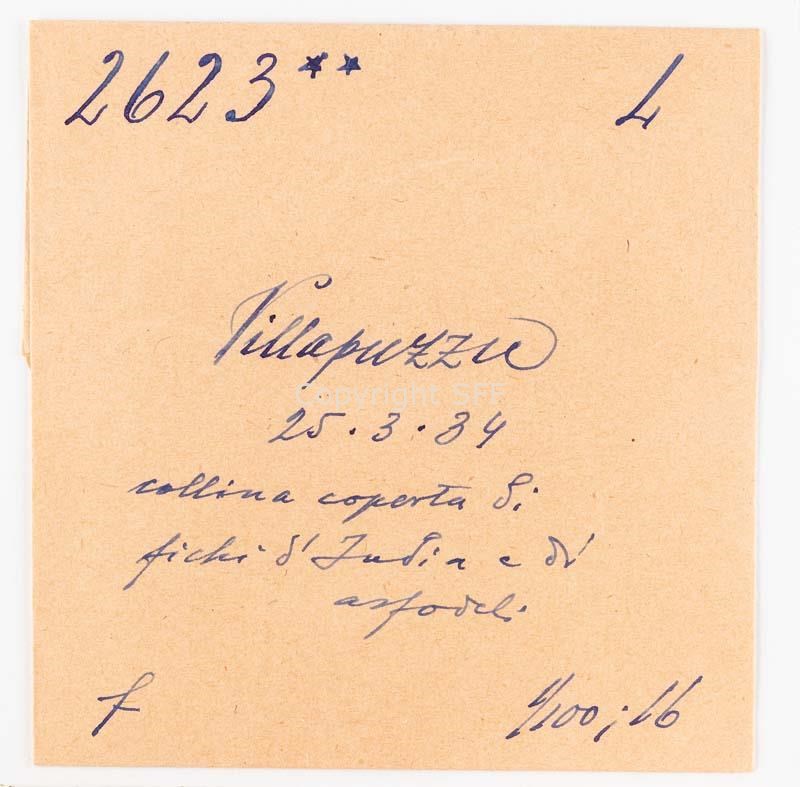 2623** L
Villapuzzu
Copyright SFF
25.3.34
collina coperta di
fichi d'India e di
asfodeli
f 1/100; 16